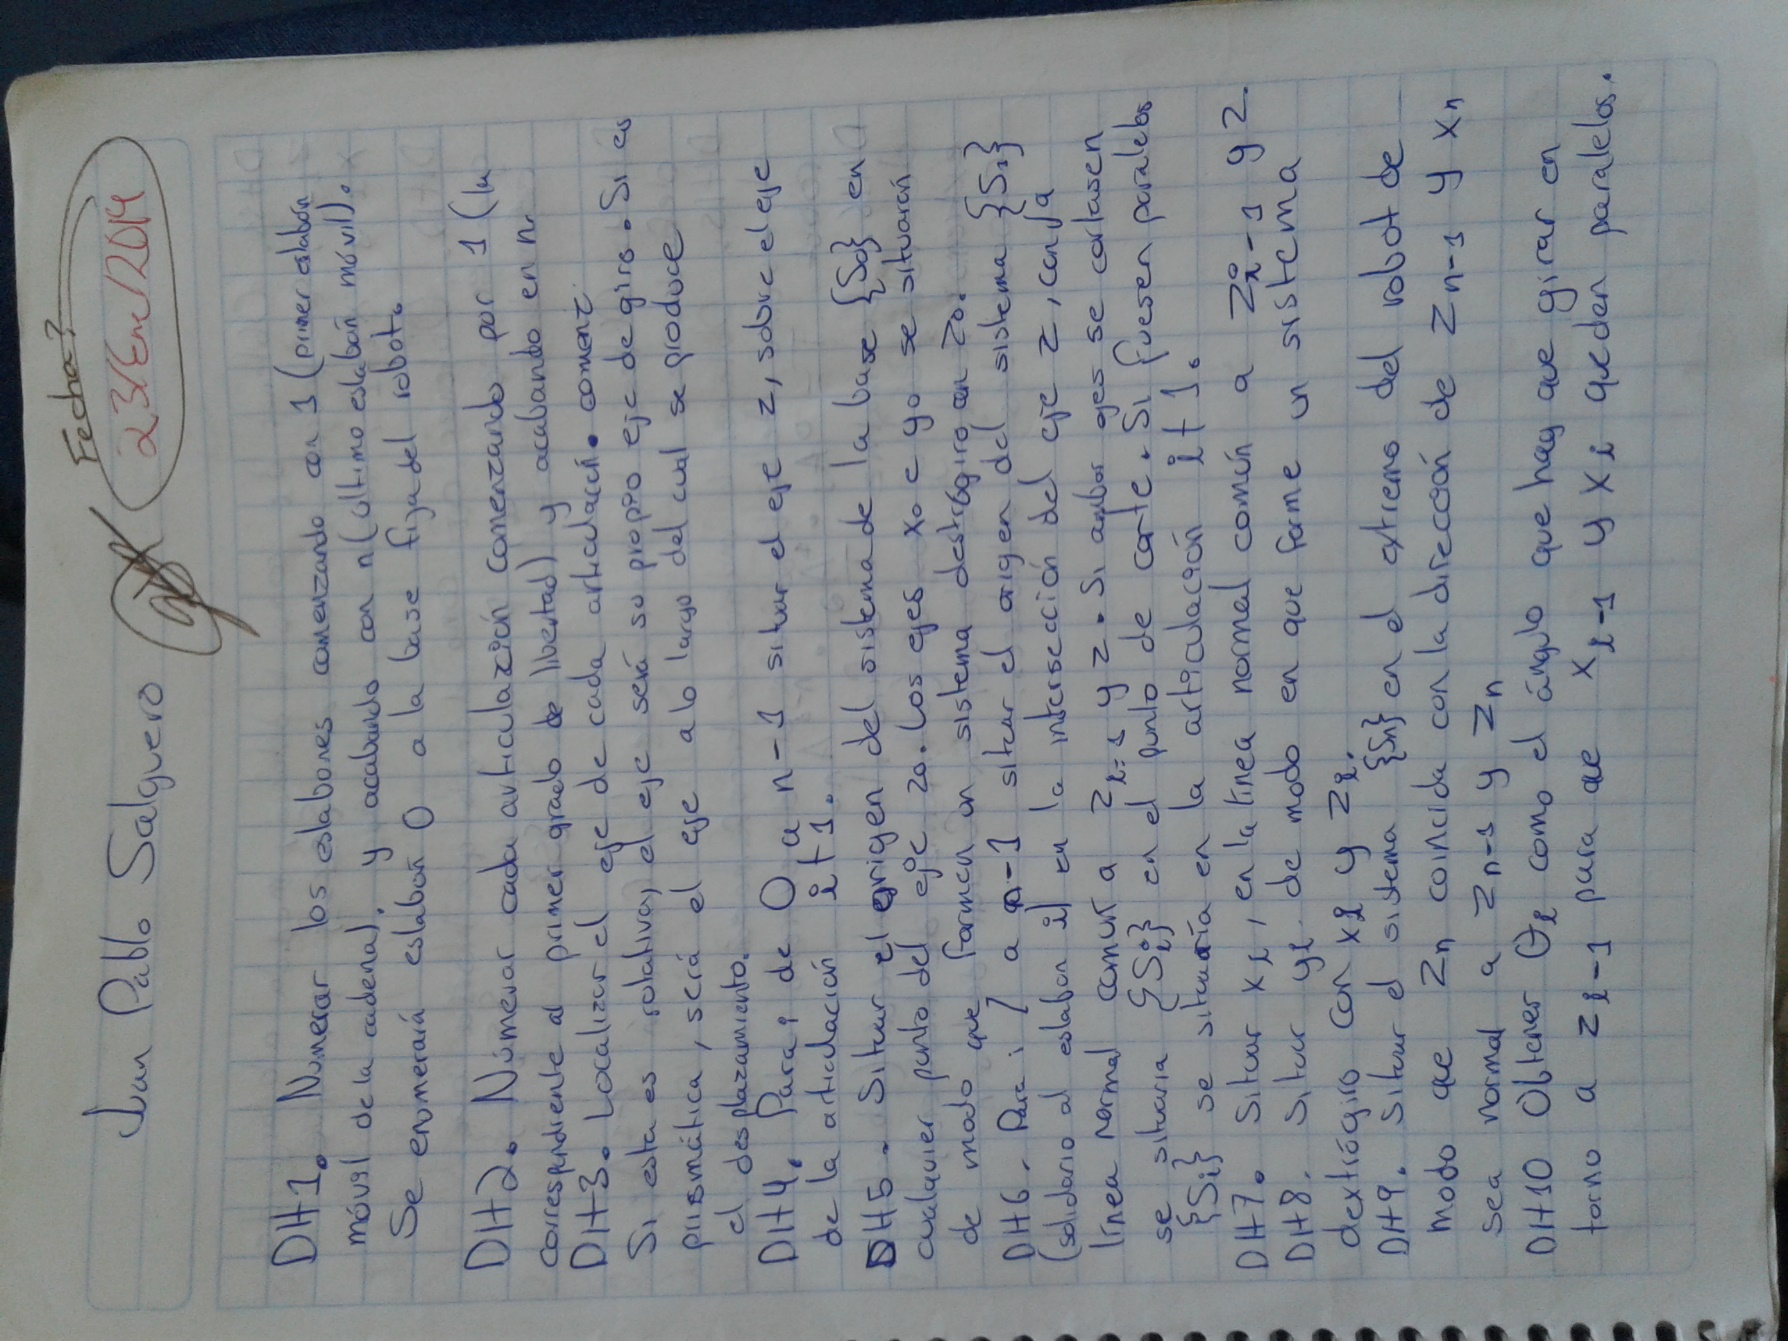 Fecha?
Juan Pablo Salguero 23/Ene/2014
DH1. Numerar los eslabones comenzando con 1 (primer eslabón
móvil de la cadena), y acabando con n (ultimo eslabón móvil).
Se enumerará eslabón 0 a la base fija del robot.
DH2. Númerar cada articulazión comenzando por 1 (la
correspondiente al primer grado de libertad) y acabando en n
DH3. Localizar el eje de cada articulación. coment
Si esta es rotativa, el eje será su propio eje de giro. Si es
prismática, será el eje a lo largo del cual se produce
el desplazamiento.
DH4. Para i de 0 a n-1 situar el eje z, sobre el eje
de la articulación i+1.
DH5. Situar el origen del sistema de la base {So} en
cualquier punto del eje zo. Los ejes xo e yo se situarán
de modo que forman un sistema destrógiro con zo.
DH6. Para i 1 a n-1 situar el origen del sistema {Si}
(solidario al eslabon i) en la intersección del eje z, con la
línea normal comun a zi-1 y z. Si ambos ejes se cortasen
se situaria {Si} en el punto de corte. Si fuesen paralelos
{Si} se situaría en la articulación i+1.
DH7. Situar xi, en la línea normal común a zi-1 y z.
DH8. Situar yi de modo en que forme un sistema
dextrógiro con xi y zi.
DH9. Situar el sistema {Sn} en el extremo del robot de
modo que zn coincida con la dirección de zn-1 y xn
sea normal a zn-1 y zn
DH10 Obtener θi como el ángulo que hay que girar en
torno a zi-1 para que xi-1 y xi quedan paralelos.